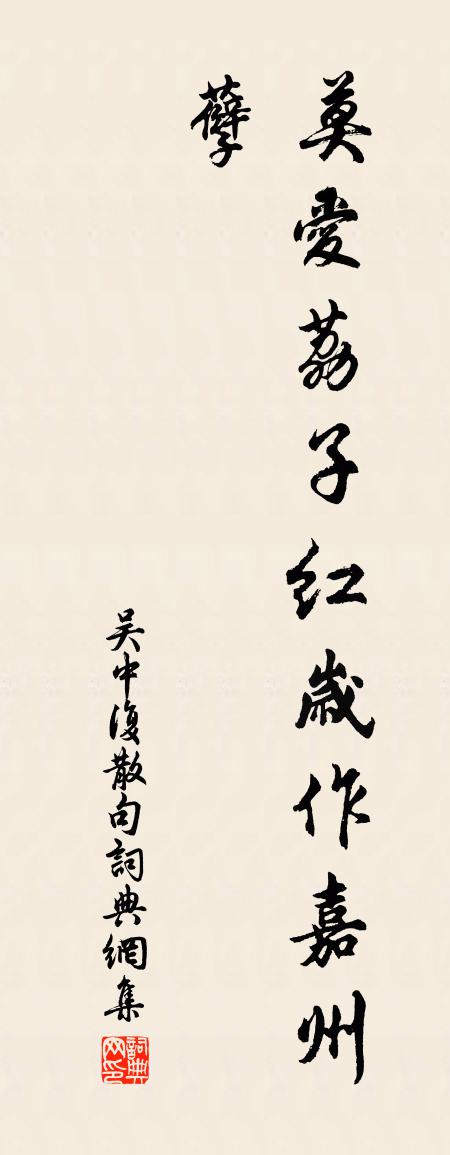 莫愛荔子紅歲作嘉州
孽
吳中復散句詞典網集
詞典网印